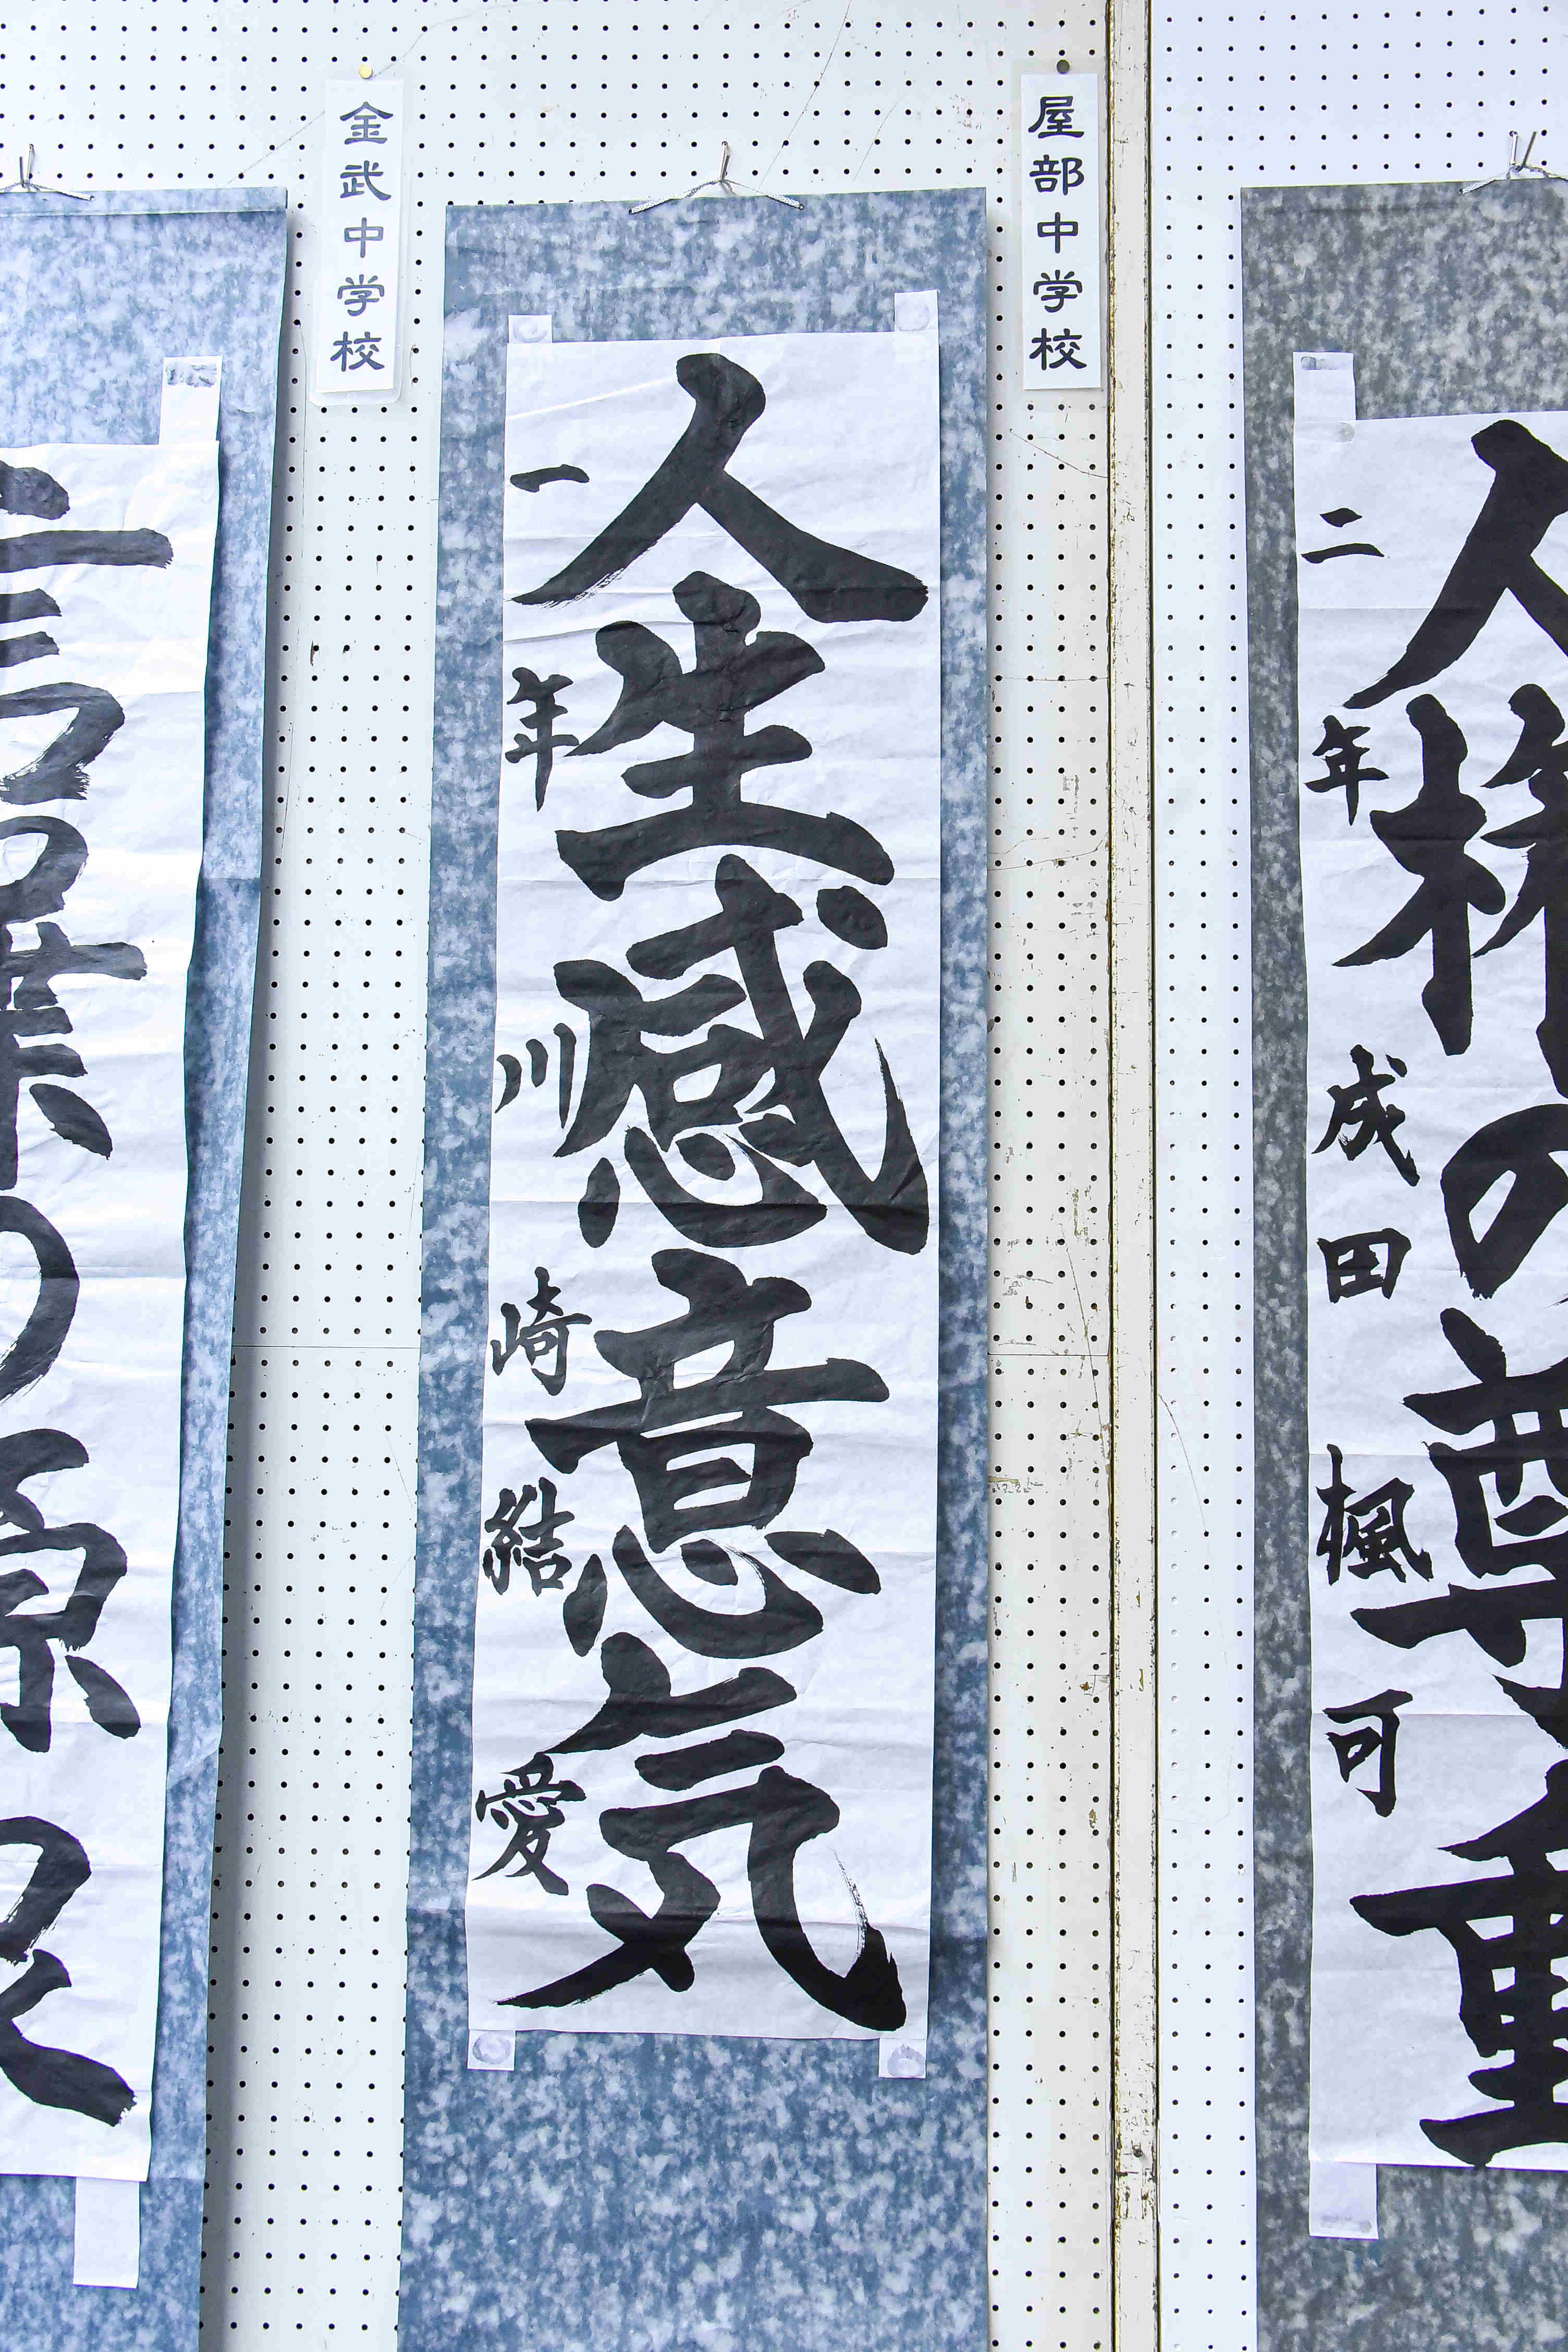 人権の尊重
二年 成田楓可
屋部中学校
人生感意気
一年 川崎結愛
金武中学校
言葉の